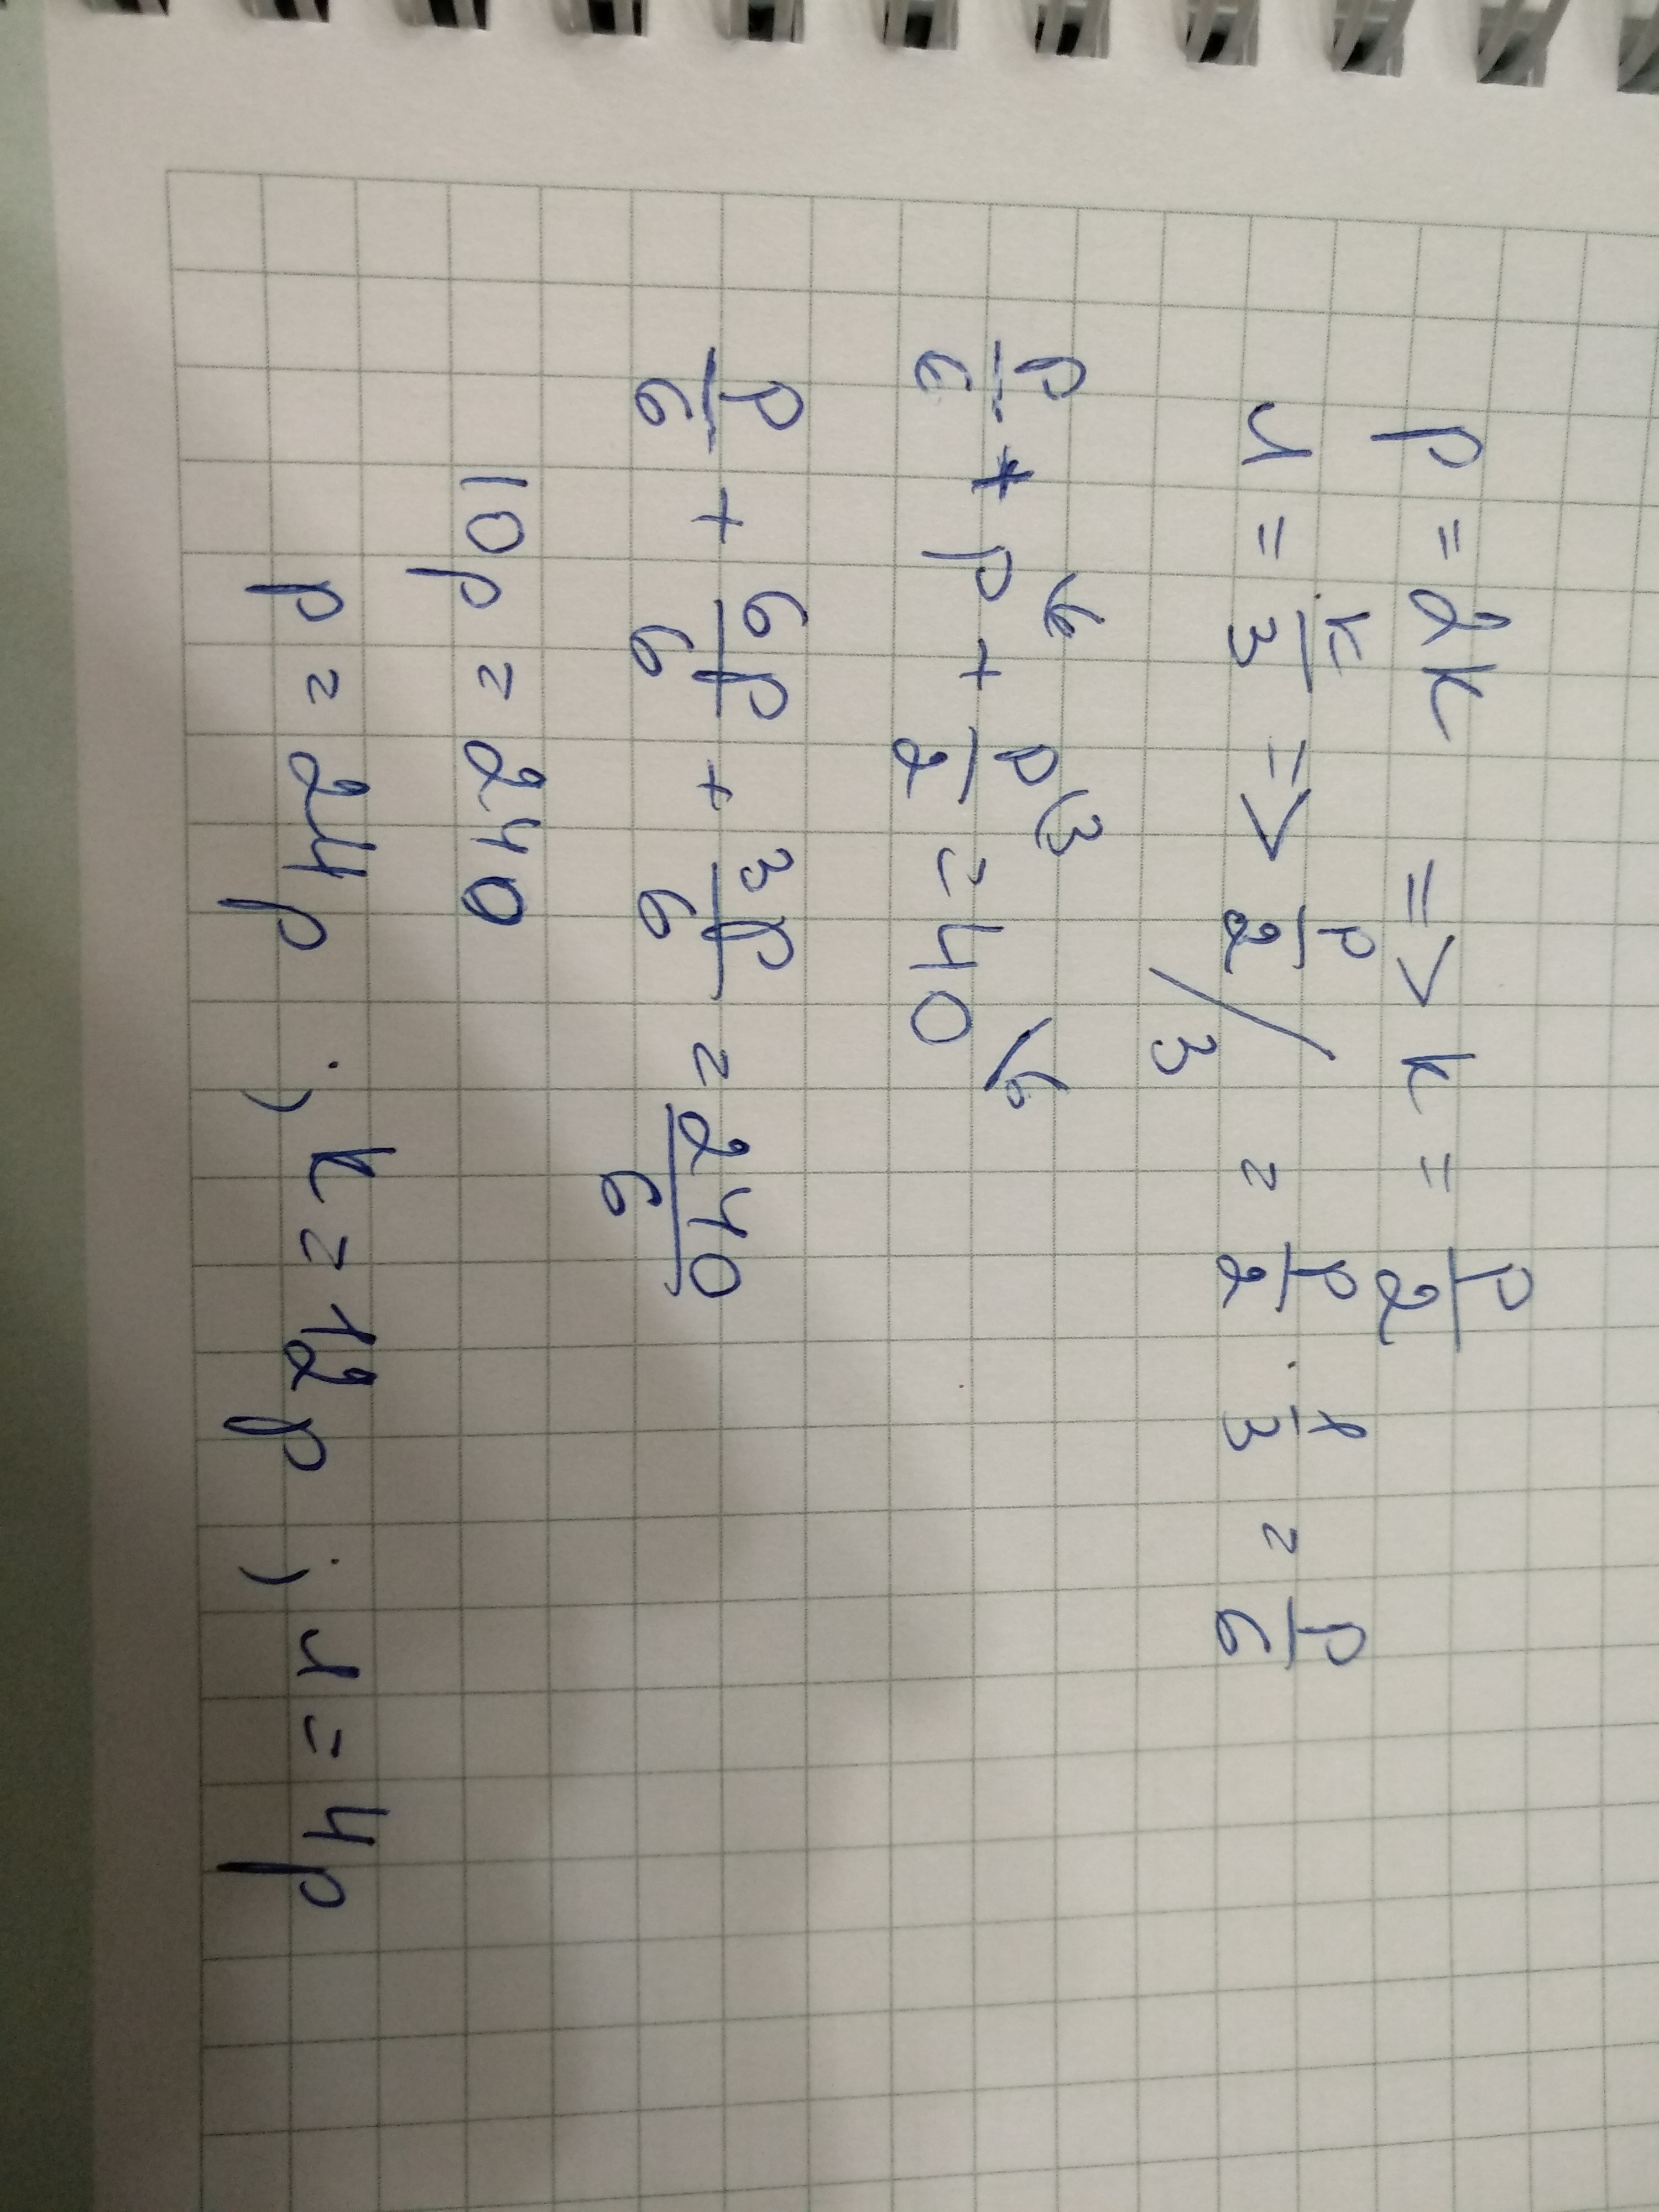 p = 2k => k = p/2
r = k/3 => p/2 / 3 = p/2 · 1/3 = p/6
p/6 + p\6 + p/2\3 = 40\6
p/6 + 6p/6 + 3p/6 = 240/6
10p = 240
p = 24р ; k = 12р ; r = 4р